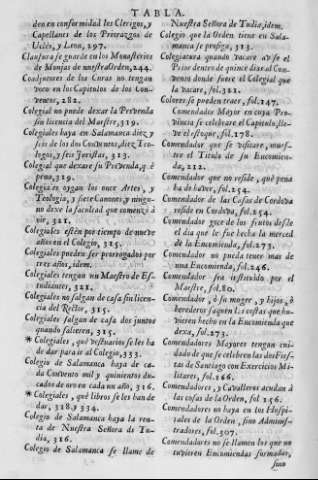 TABLA.
den en conformidad los Clerigos, y
Capellanes de los Priorazgos de
Uclés, y Leon, 297.
Clausura se guarde en los Monasterios
de Monjas de nuestra Orden, 244.
Coadjutores de los Curas no tengan
voto en los Capitulos de los Con-
ventos, 282.
Colegial no puede dexar la Prevenda
sin licencia del Maestre, 319.
Colegiales haya en Salamanca diez y
seis de los dos Conventos, diez Teo-
logos, y seis Juristas, 313.
Colegial que dexare su Prevenda, q̃
pena, 319.
Colegiales oygan los once Artes, y
Teologia, y siete Canones, y ningu-
no dexe la facultad que comenzó à
oir, 321.
Colegiales estén por tiempo de nueve
años en el Colegio, 325.
Colegiales pueden ser prorogados por
tres años, idem.
Colegiales tengan un Maestro de Es-
tudiantes, 321.
Colegiales no salgan de casa sin licen-
cia del Rector, 315.
Colegiales salgan de casa dos juntos
quando salieren, 315.
* Colegiales, què vestuarios se les ha
de dar para ir al Colegio, 333.
Colegio de Salamanca haya de ca-
da Convento mil y quinientos du-
cados de oro en cada un año, 316.
* Colegiales, què libros se les han de
dar, 318. y 334.
Colegio de Salamanca haya la ren-
ta de Nuestra Señora de Tu-
dia, 316.
Colegio de Salamanca se llame de
Nuestra Señora de Tudia, idem.
Colegio que la Orden tiene en Sala-
manca se prosiga, 313.
Colegiatura quando vacare avise el
Prior dentro de quince dias al Con-
vento donde fuere el Colegial que
la vacare, fol. 321.
Colores se pueden traer, fol. 147.
Comendador Mayor en cuya Pro-
vincia se celebrare el Capitulo, lle-
ve el estoque, fol. 178.
Comendador que se visitare, mues-
tre el Titulo de su Encomien-
da, 212.
Comendador que no reside, què pena
ha de haver, fol. 254.
Comendador de las Casas de Cordova
reside en Cordova, fol. 254.
Comendador goce de los frutos desde
el dia que le fue hecha la merced
de la Encomienda, fol. 273.
Comendador no pueda tener mas de
una Encomienda, fol. 246.
Comendador sea instituido por el
Maestre, fol. 80.
Comendador, ò su muger, y hijos, ò
herederos saquen las costas que hu-
vieren hecho en la Encomienda que
dexa, fol. 273.
Comendadores Mayores tengan cui-
dado de que se celebren las dos Fies-
tas de Santiago con Exercicios Mi-
litares, fol. 166.
Comendadores, y Cavalleros acudan à
las cosas de la Orden, fol. 156.
Comendadores no haya en los Hospi-
tales de la Orden, sino Adminis-
tradores, fol. 307.
Comendadores no se llamen los que no
tuvieren Encomiendas formadas,
sino